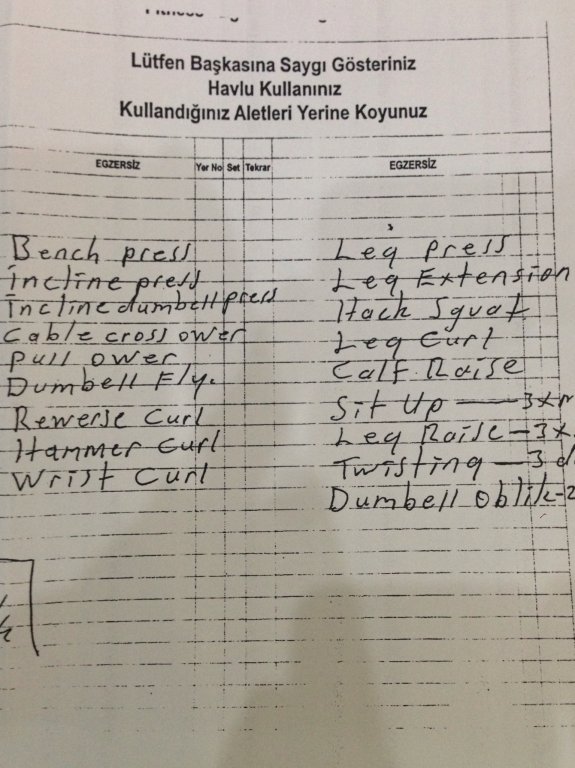 Lütfen Başkasına Saygı Gösteriniz
Havlu Kullanınız
Kullandığınız Aletleri Yerine Koyunuz
EGZERSİZ Yer No Set Tekrar EGZERSİZ
Bench press
İncline press
İncline dumbell press
Cable cross ower
Pull ower
Dumbell Fly.
Rewerse Curl
Hammer Curl
Wrist Curl
Leg Press
Leg Extension
Hack Squat
Leg Curl
Calf Raise
Sit Up — 3x
Leg Raise — 3x
Twisting — 3 d
Dumbell oblik - 2